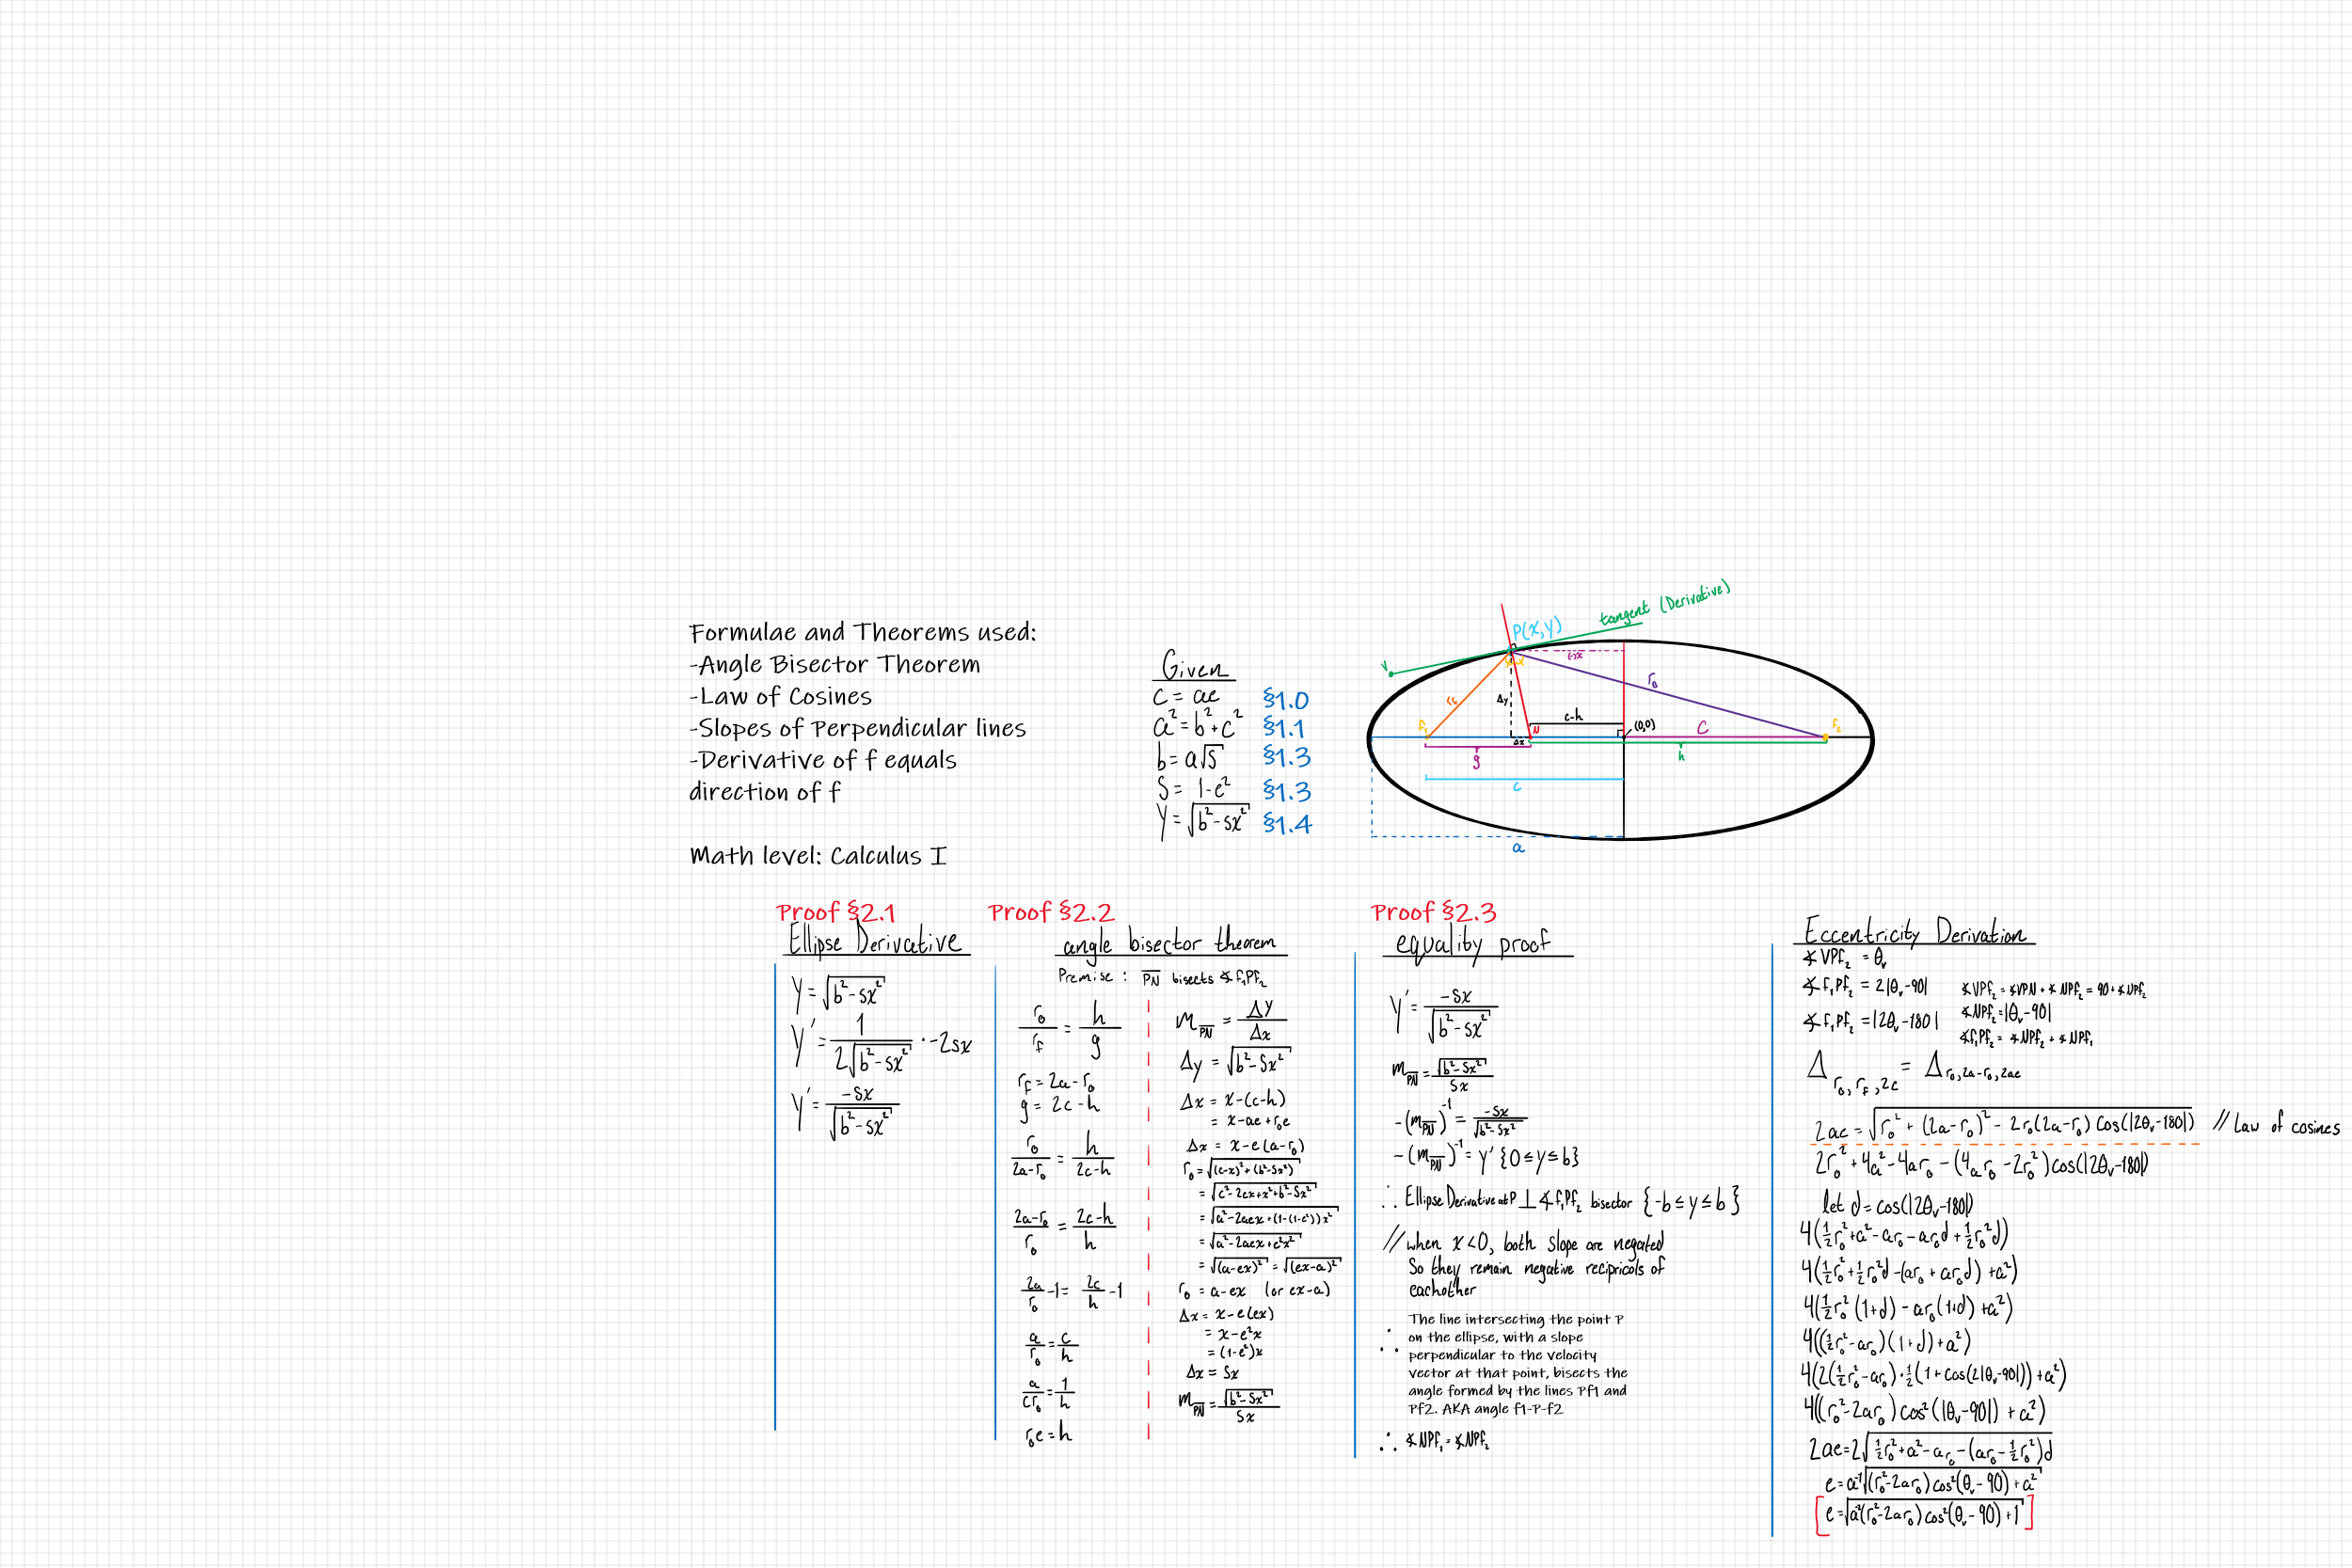 Formulae and Theorems used:
-Angle Bisector Theorem
-Law of Cosines
-Slopes of Perpendicular lines
-Derivative of f equals
direction of f
Math level: Calculus I
Given
c = ae §1.0
a² = b² + c² §1.1
b = a√s §1.3
S = 1-e² §1.3
Y = √(b²-sx²) §1.4
tangent (Derivative)
P(x,y)
V
(-)x
r₀
r_f
Δy
c-h
(0,0)
C
f₁
N
f₂
Δx
g
h
c
a
Proof §2.1
Ellipse Derivative
Y = √(b²-sx²)
Y' = 1/(2√(b²-sx²)) · -2sx
Y' = -sx/√(b²-sx²)
Proof §2.2
angle bisector theorem
Premise: PN bisects ∡f₁Pf₂
r₀/r_f = h/g
r_f = 2a-r₀
g = 2c-h
r₀/(2a-r₀) = h/(2c-h)
(2a-r₀)/r₀ = (2c-h)/h
2a/r₀ -1 = 2c/h -1
a/r₀ = c/h
a/(cr₀) = 1/h
r₀e = h
m_PN = ΔY/Δx
Δy = √(b²-Sx²)
Δx = x-(c-h)
= x-ae+r₀e
Δx = x-e(a-r₀)
r₀ = √((c-x)²+(b²-Sx²))
= √(c²-2cx+x²+b²-Sx²)
= √(a²-2aex+(1-(1-e²))x²)
= √(a²-2aex+e²x²)
= √((a-ex)²) = √((ex-a)²)
r₀ = a-ex (or ex-a)
Δx = x-e(ex)
= x-e²x
= (1-e²)x
Δx = Sx
m_PN = √(b²-Sx²)/Sx
Proof §2.3
equality proof
Y' = -sx/√(b²-sx²)
m_PN = √(b²-Sx²)/Sx
-(m_PN)⁻¹ = -Sx/√(b²-Sx²)
-(m_PN)⁻¹ = Y' {0≤y≤b}
∴ Ellipse Derivative at P ⊥ ∡f₁Pf₂ bisector {-b≤y≤b}
// when x<0, both slope are negated
So they remain negative recipricols of
eachother
∴ The line intersecting the point P
on the ellipse, with a slope
perpendicular to the velocity
vector at that point, bisects the
angle formed by the lines Pf1 and
Pf2. AKA angle f1-P-f2
∴ ∡NPf₁ = ∡NPf₂
Eccentricity Derivation
∡VPf₂ = θᵥ
∡f₁Pf₂ = 2|θᵥ-90|
∡f₁Pf₂ = |2θᵥ-180|
∡VPf₂ = ∡VPN + ∡NPf₂ = 90 + ∡NPf₂
∡NPf₂ = |θᵥ-90|
∡f₁Pf₂ = ∡NPf₂ + ∡NPf₁
Δ r₀, r_f, 2c = Δ r₀, 2a-r₀, 2ae
2ae = √(r₀² + (2a-r₀)² - 2r₀(2a-r₀) Cos(|2θᵥ-180|)) // Law of cosines
2r₀² + 4a² - 4ar₀ - (4ar₀ - 2r₀²)cos(|2θᵥ-180|)
let d = cos(|2θᵥ-180|)
4(½r₀² + a² - ar₀ - ar₀d + ½r₀²d)
4(½r₀² + ½r₀²d - (ar₀ + ar₀d) + a²)
4(½r₀²(1+d) - ar₀(1+d) + a²)
4((½r₀²-ar₀)(1+d) + a²)
4(2(½r₀²-ar₀)·½(1+cos(2|θᵥ-90|)) + a²)
4((r₀²-2ar₀)cos²(|θᵥ-90|) + a²)
2ae = 2√(½r₀² + a² - ar₀ - (ar₀-½r₀²)d)
e = a⁻¹√((r₀²-2ar₀)cos²(θᵥ-90) + a²)
[e = √(a⁻²(r₀²-2ar₀)cos²(θᵥ-90) + 1)]